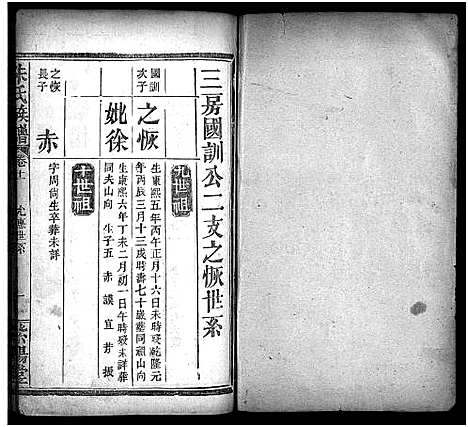 三房國訓公二支之恢世系
九世祖
國訓次子
之恢
生康熙五年丙午正月十六日未時歿乾隆元
年丙辰三月十三戌時壽七十歲墓同祖山向
妣徐
生康熙六年丁未二月初一日午時歿未詳葬
同夫山向 生子五 赤 謨 宜 哲 振
十世祖
之恢長子
赤
字周尚生卒葬未詳
朱氏族譜
卷十
世系
一
紫陽堂